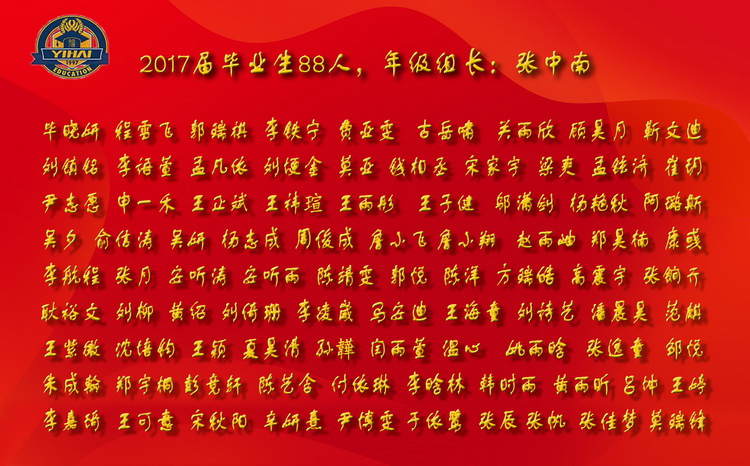 YIHAI
EDUCATION
2017届毕业生88人，年级组长：张中南
毕晓妍 程雪飞 郭瑞祺 李铁宁 费亚雯 古岳啸 关雨欣 顾昊月 靳文迪
刘镇铭 李语萱 孟凡依 莫亚 钱相丞 宋家宇 梁爽 孟铉济 崔玥
尹志愿 申一禾 王正斌 王祎瑄 王雨彤 王子健 邬潇剑 杨艳秋 阿璐斯
吴夕 俞信涛 吴妍 杨志成 周俊成 詹小飞 詹小翔 赵雨岫 郑昊楠 康彧
李航程 张月 安听涛 安听雨 陈靖雯 郭悦 陈洋 方瑞皓 高震宇
耿裕文 刘柳 黄绍 刘倚珊 李凌崴 马安迪 王海童 刘诗艺 潘晨昊 范麒
王紫微 沈培钧 王颖 夏昊清 孙韡 闫雨萱 温心 姚雨晗 张逸童 邹悦
朱成翰 郑宇桐 彭竟轩 陈艺含 付依琳 李晗林 韩时雨 黄雨昕 吕帅 王崎
李嘉琦 王可意 宋秋阳 辛妍熹 尹博雯 于依鹭 张辰 张帆 张佳梦 莫瑞锋